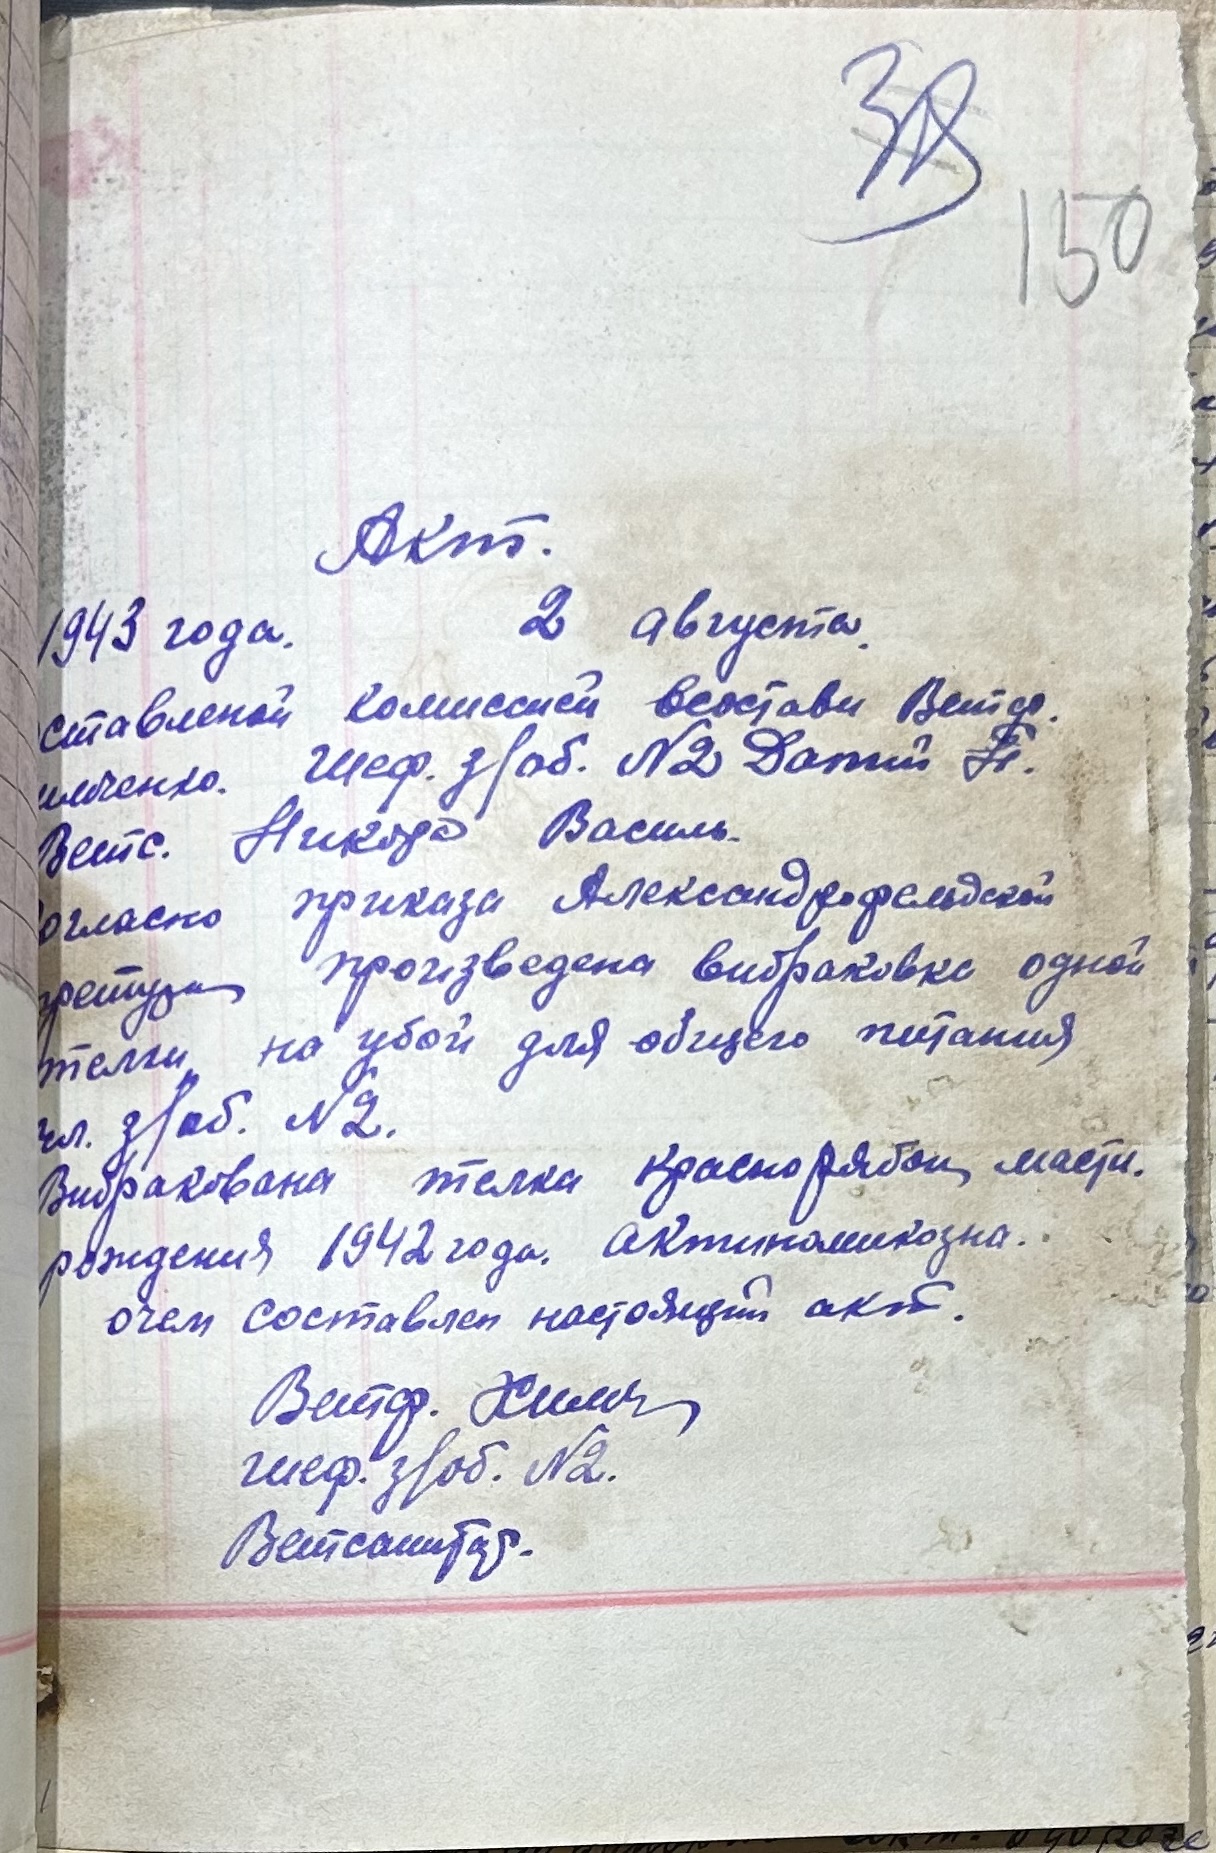 150
Акт.
1943 года. 2 августа.
ставленой комиссией всостави Ветф.
илченко. Шеф. з/об. №2 Датий Н.
Ветс. Василь.
огласно приказа Александрофельдской
произведена вибраковка одной
телки на убой для общего питания
чл. з/об. №2.
Вибракована телка краснорябой масти.
рождения 1942 года. актиномикозна.
очем составлен настоящий акт.
Ветф.
Шеф. з/об. №2.
Ветсанитар.